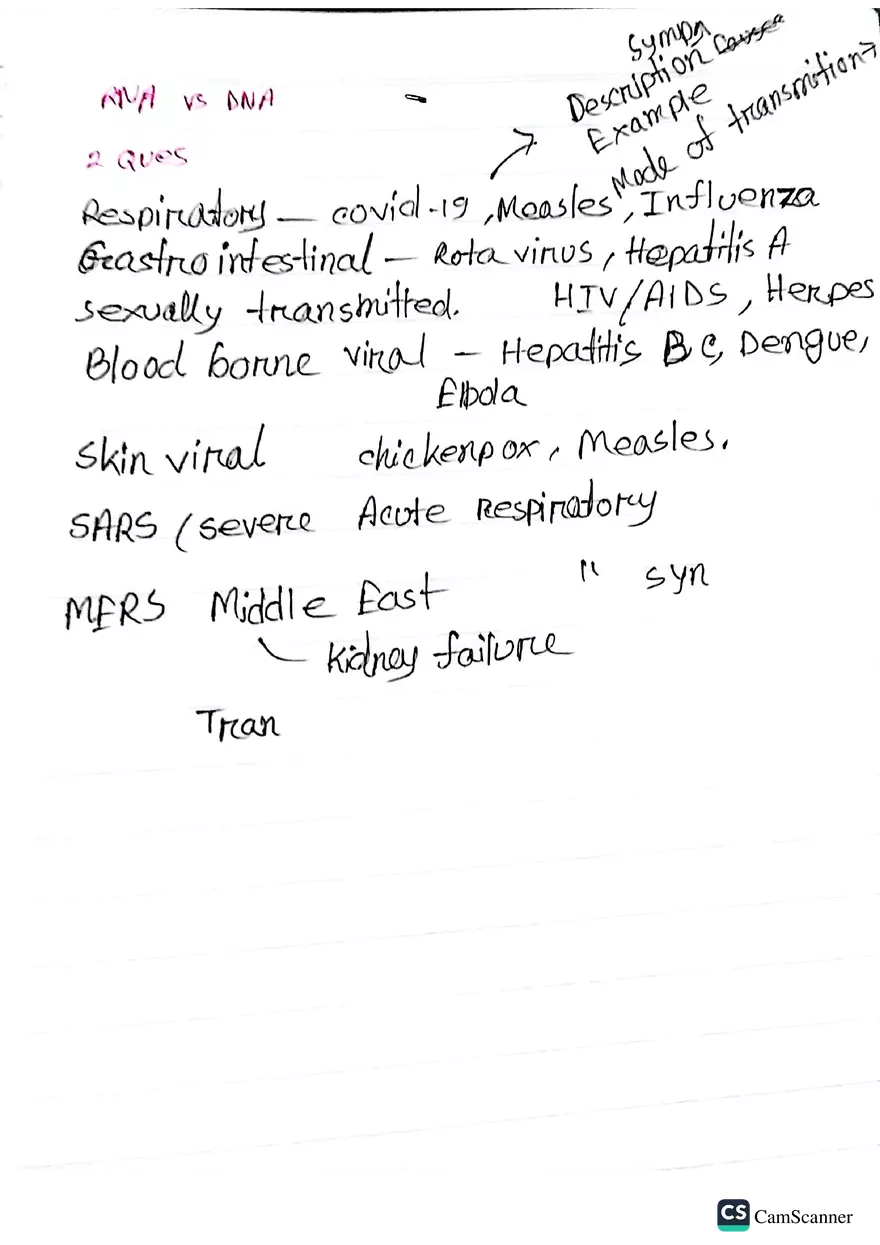 Symp
Description
Example
Mode of transmition →
RNA vs DNA
2 Ques
Respiratory – covid-19, Measles, Influenza
Gastrointestinal – Rota virus, Hepatitis A
sexually transmitted. HIV/AIDS, Herpes
Blood borne viral – Hepatitis B C, Dengue,
Ebola
Skin viral chickenpox, Measles.
SARS (severe Acute Respiratory
MERS Middle East " syn
Kidney failure
Tran
CS CamScanner